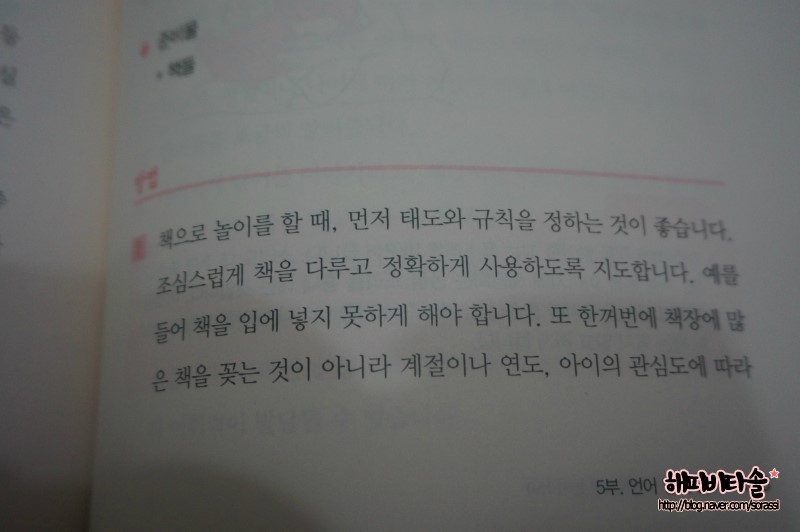 준비물
책들
방법
책으로 놀이를 할 때, 먼저 태도와 규칙을 정하는 것이 좋습니다.
조심스럽게 책을 다루고 정확하게 사용하도록 지도합니다. 예를
들어 책을 입에 넣지 못하게 해야 합니다. 또 한꺼번에 책장에 많
은 책을 꽂는 것이 아니라 계절이나 연도, 아이의 관심도에 따라
5부. 언어
해피바타솔
http://blog.naver.com/sorassl